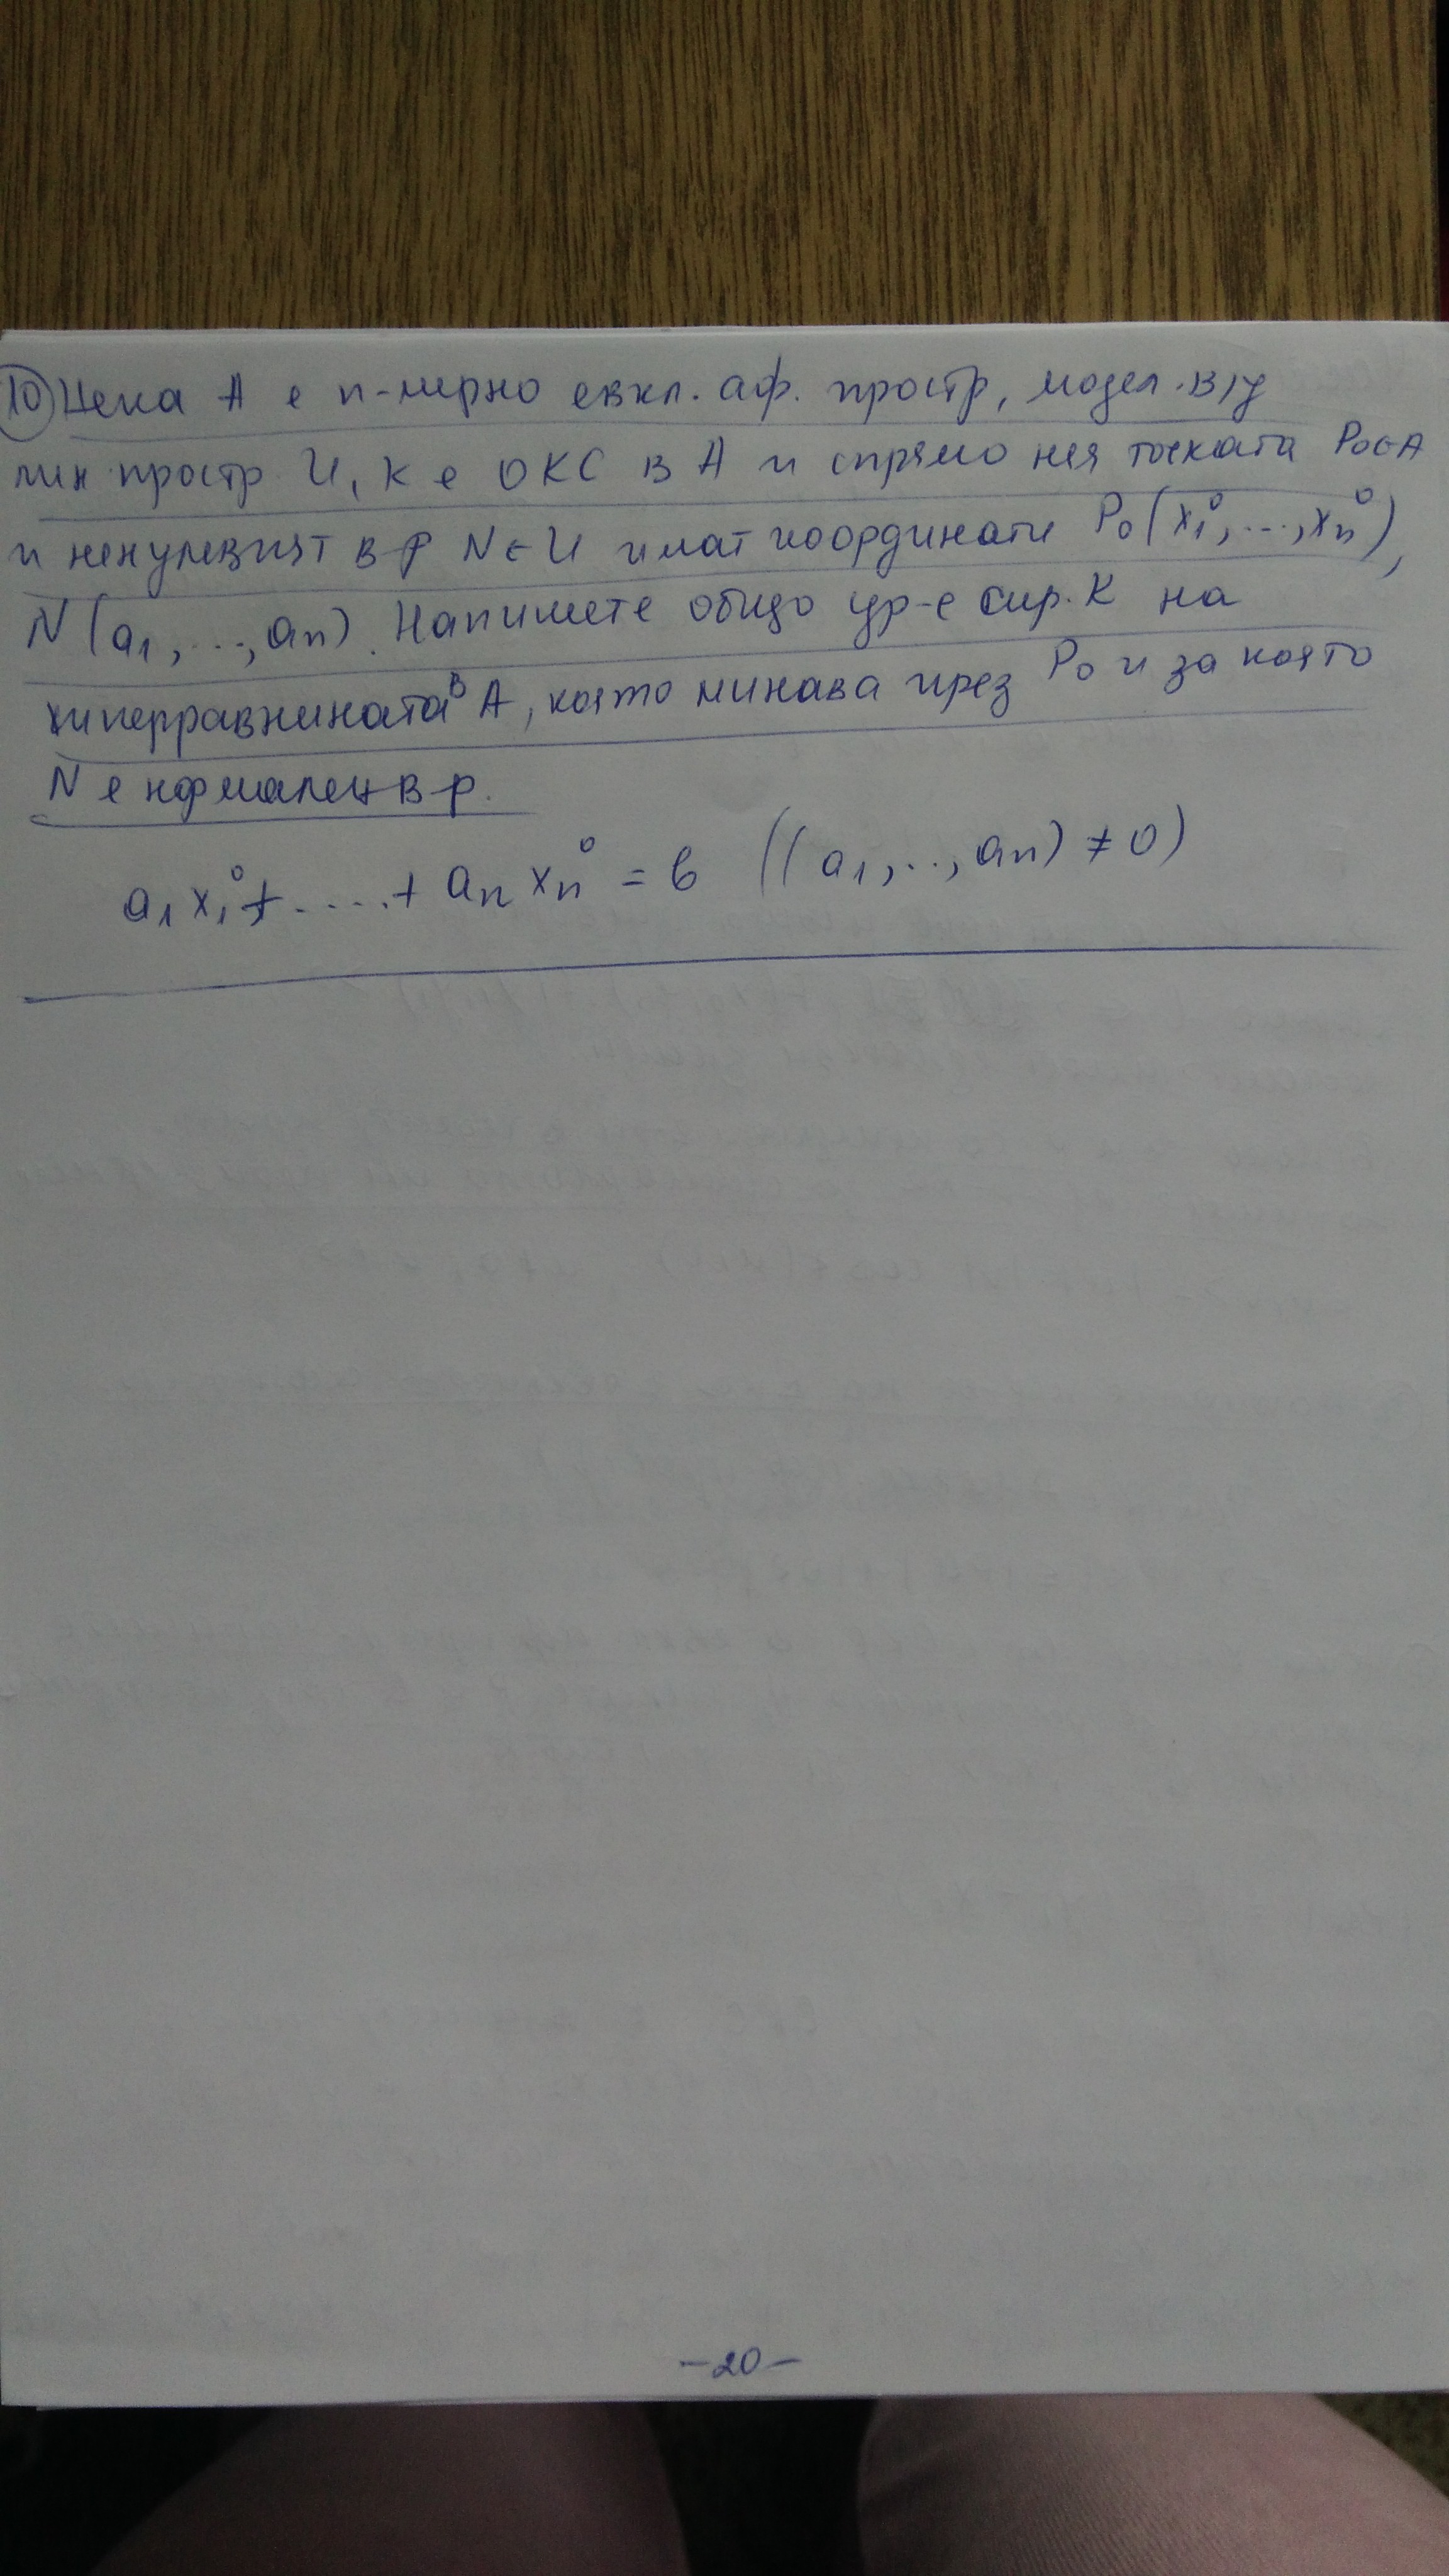 10 Нека A е n-мерно евкл. аф. простр, модел. в/у
лин простр U, K е ОКС в A и спрямо нея точката P₀∈A
и ненулевият в-р N∈U имат координати P₀(x₁⁰,...,xₙ⁰),
N(a₁,...,aₙ). Напишете общо ур-е спр. K на
хиперравнината в A, която минава през P₀ и за която
N е нормален в-р.
a₁x₁⁰+.....+aₙxₙ⁰ = b ((a₁,...,aₙ) ≠ 0)
-20-